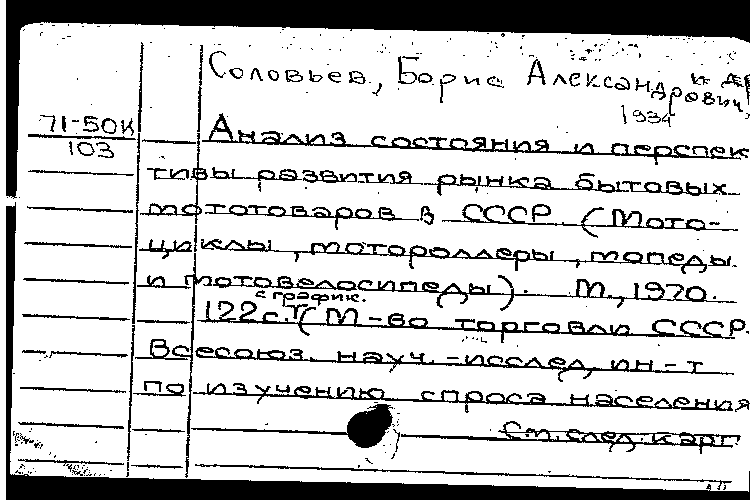 Соловьев, Борис Александрович,
и др
1934
71-50к
103
Анализ состояния и перспек
тивы развития рынка бытовых
мототоваров в СССР. (Мото-
циклы, мотороллеры, мопеды
и мотовелосипеды). М., 1970.
с график.
122 с. (М-во торговли СССР.
Всесоюз. науч.-исслед. ин-т
по изучению спроса населения
См. след. карт